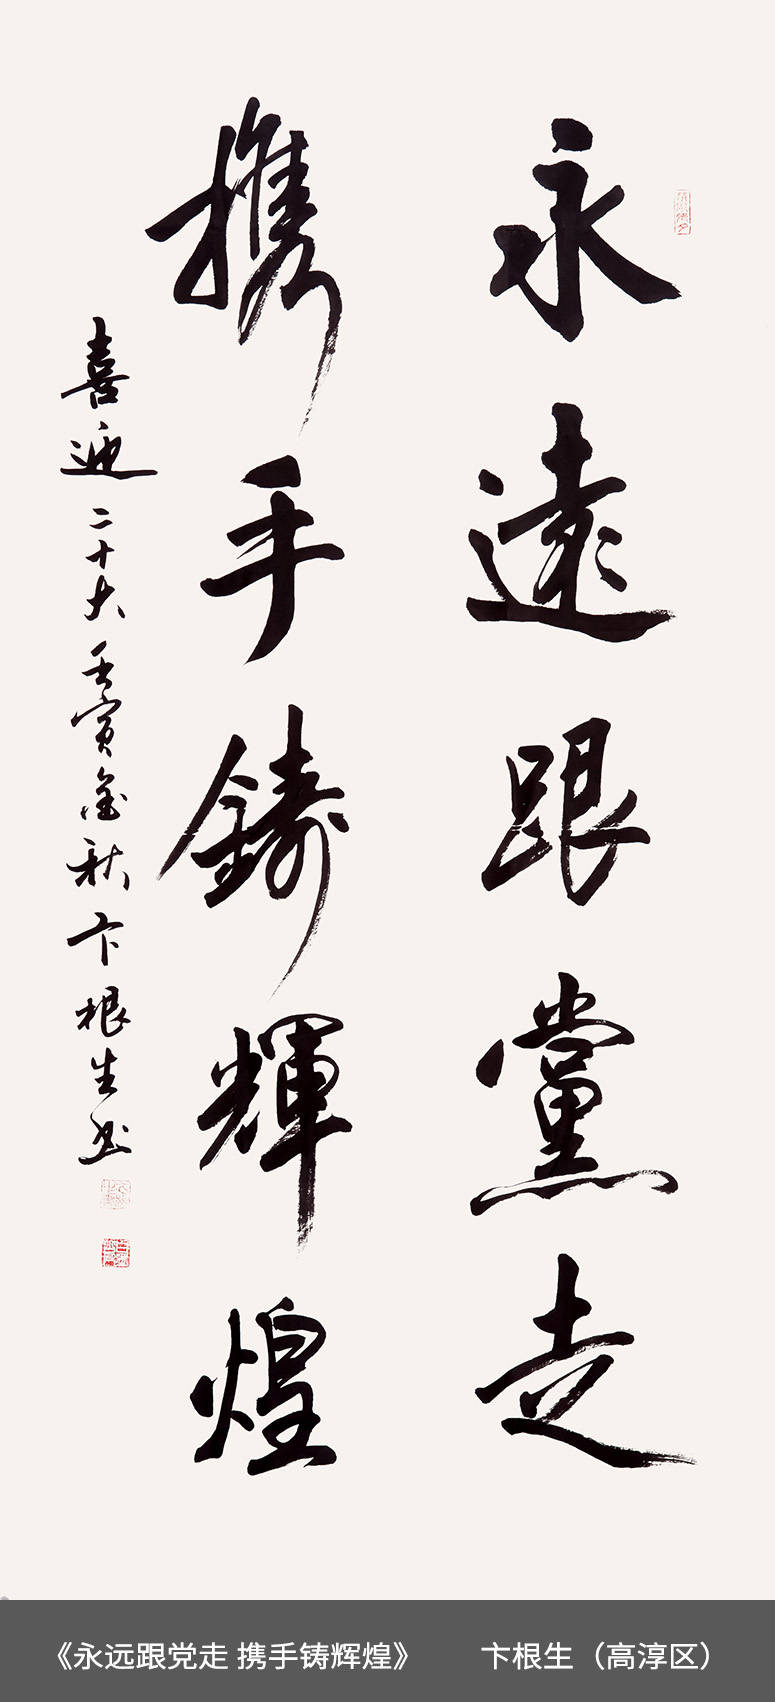 永遠跟黨走
携手鑄輝煌
喜迎二十大壬寅金秋卞根生书
《永远跟党走 携手铸辉煌》 卞根生（高淳区）